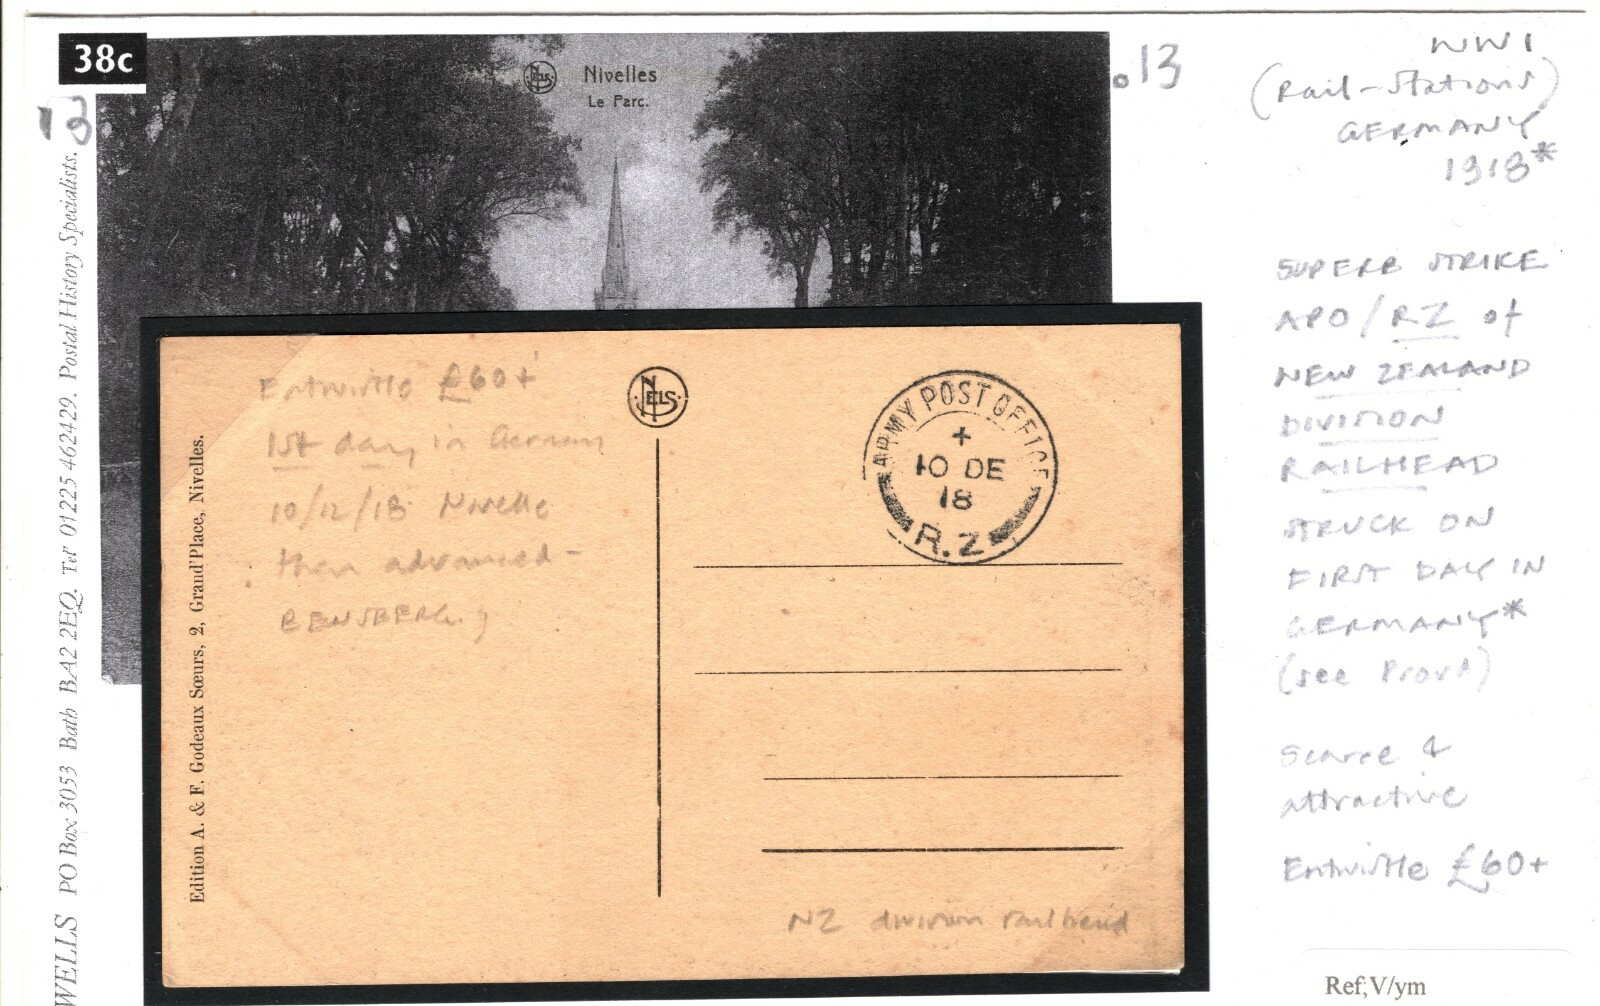 38c
13
Nels
Nivelles
Le Parc.
.13
WELLS PO Box 3053 Bath BA2 2EQ. Tel 01225 462429. Postal History Specialists.
WW1
(Rail-Stations)
GERMANY
1918*
SUPERB STRIKE
APO/RZ of
NEW ZEALAND
DIVISION
RAILHEAD
STRUCK ON
FIRST DAY IN
GERMANY*
(see Proud)
Scarce &
attractive
Entwistle £60+
Ref;V/ym
Entwistle £60+
1st day in Germany
10/12/18 Nivelle
then advanced -
BENSBERG.
NELS
ARMY POST OFFICE
+
10 DE
18
R.Z
Edition A. & F. Godeaux Sœurs, 2, Grand'Place, Nivelles.
NZ division railhead